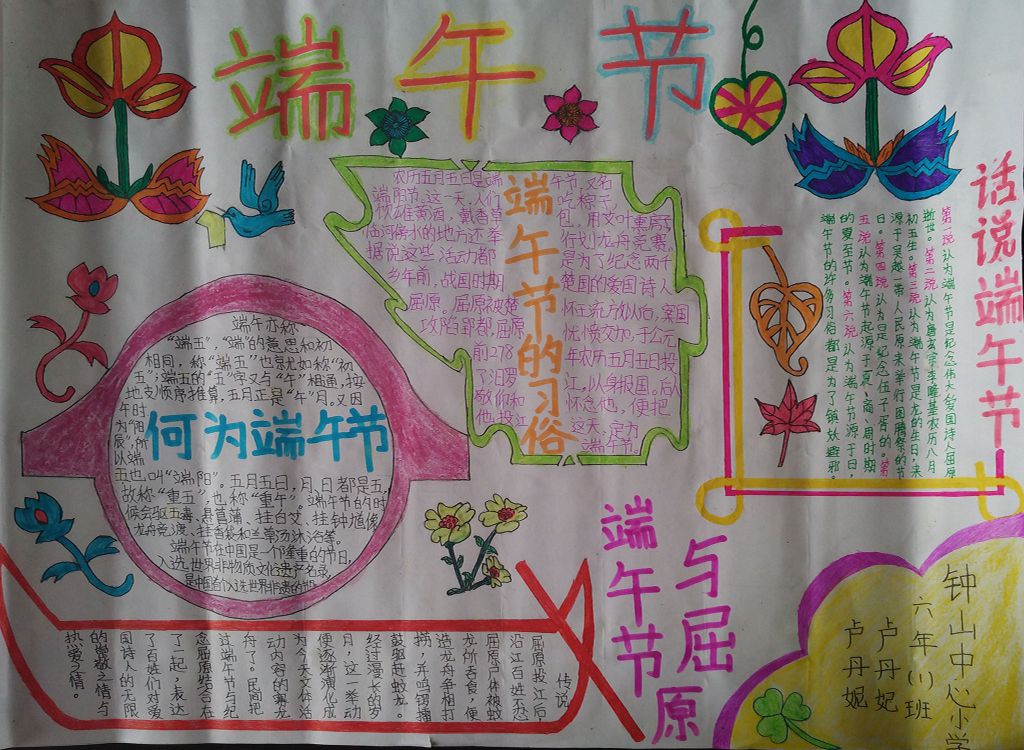 端午节
农历五月五日是端午节,又名
端阳节。这一天,人们吃粽子,
饮雄黄酒,戴香草包,用艾叶熏房子,
临河傍水的地方还举行划龙舟竞赛,
据说这些活动都是为了纪念两千
多年前,战国时期楚国的爱国诗人
屈原。屈原被楚怀王流放以后,案国
攻陷郢都,屈原忧愤交加,于公元
前278年农历五月五日投
了汨罗江,以身报国。后人
敬仰和怀念他,便把
他投江这天,定为
端午节。
端午节的习俗
话说端午节
第一说认为端午节是纪念伟大爱国诗人屈原
逝世。第二说认为唐玄宗李隆基农历八月
初五生。第三说认为端午节是龙的生日,来
源于吴越一带人民原来举行图腾祭的节
日。第四说认为是纪念伍子胥的。第
五说认为端午节起源于夏、商、周时期
的夏至节。第六说认为端午节源于日,
端午节的许多习俗都是为了镇妖避邪。
端午亦称
“端五”,“端”的意思和初
相同,称“端五”也就如称“初
五”;端五的“五”字又与“午”相通,按
地支顺序推算,五月正是“午”月。又因
午时
为“阳
辰”,所
以端
五也叫“端阳”。五月五日,月、日都是五,
故称“重五”,也称“重午”。端午节的时
候会驱五毒、悬菖蒲、挂白艾、挂钟馗像、
龙舟竞渡、挂香袋和兰草汤沐浴等。
端午节在中国是一个隆重的节日,
入选世界非物质文化遗产名录,
是中国首个入选世界非遗的节日
何为端午节
端午节与屈原
传说
屈原投江后,
沿江百姓不忍
屈原尸体被蚊
龙所吞食,便
造龙舟争相打
捞,并鸣锣播
鼓驱赶蚊龙。
经过漫长的岁
月,这一举动
便逐渐演化成
为今天文体活
动内容的赛龙
舟了。民间把
过端午节与纪
念屈原结合在
了一起,表达
了百姓们对爱
国诗人的无限
的崇敬之情与
热爱之情。
钟山中心小学
六年(1)班
卢丹妃
卢丹妮